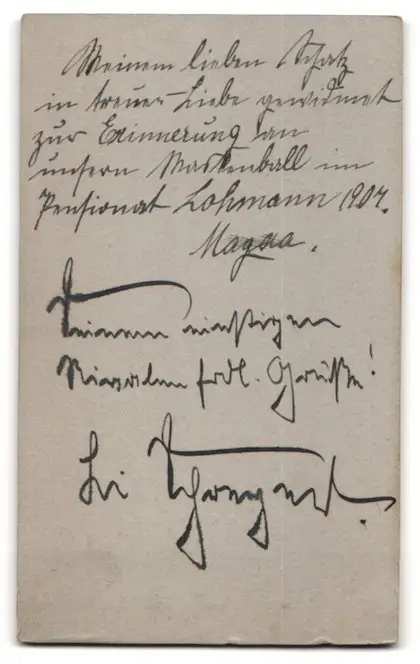 Meinem lieben Schatz
in treuer Liebe gewidmet
zur Erinnerung an
unsern Maskenball im
Pensionat Lohmann 1907.
Magda.
Meinem einstigen
frdl. Grüße!